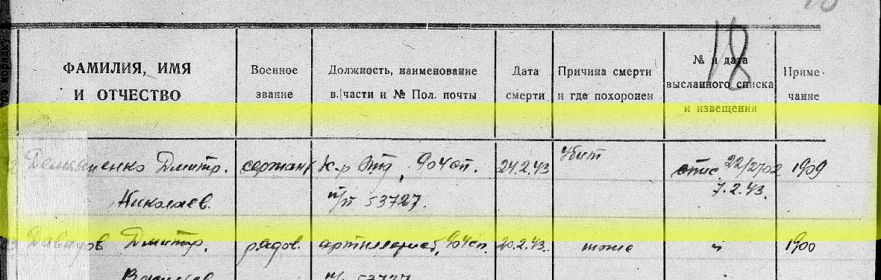 18
ФАМИЛИЯ, ИМЯ
И ОТЧЕСТВО
Военное
звание
Должность, наименование
в/части и № Пол. почты
Дата
смерти
Причина смерти
и где похоронен
№ и дата
высланного списка
и извещения
Приме-
чание
Дмитр.
Николаев.
сержант
к-р отд, 904 сп.
п/п 53727.
24.2.43
Убит
спис. 22/2702
7.2.43.
1909
Давыдов Дмитр.
рядов.
артиллерист, 904 сп.
20.2.43.
тоже
"
1900
53727